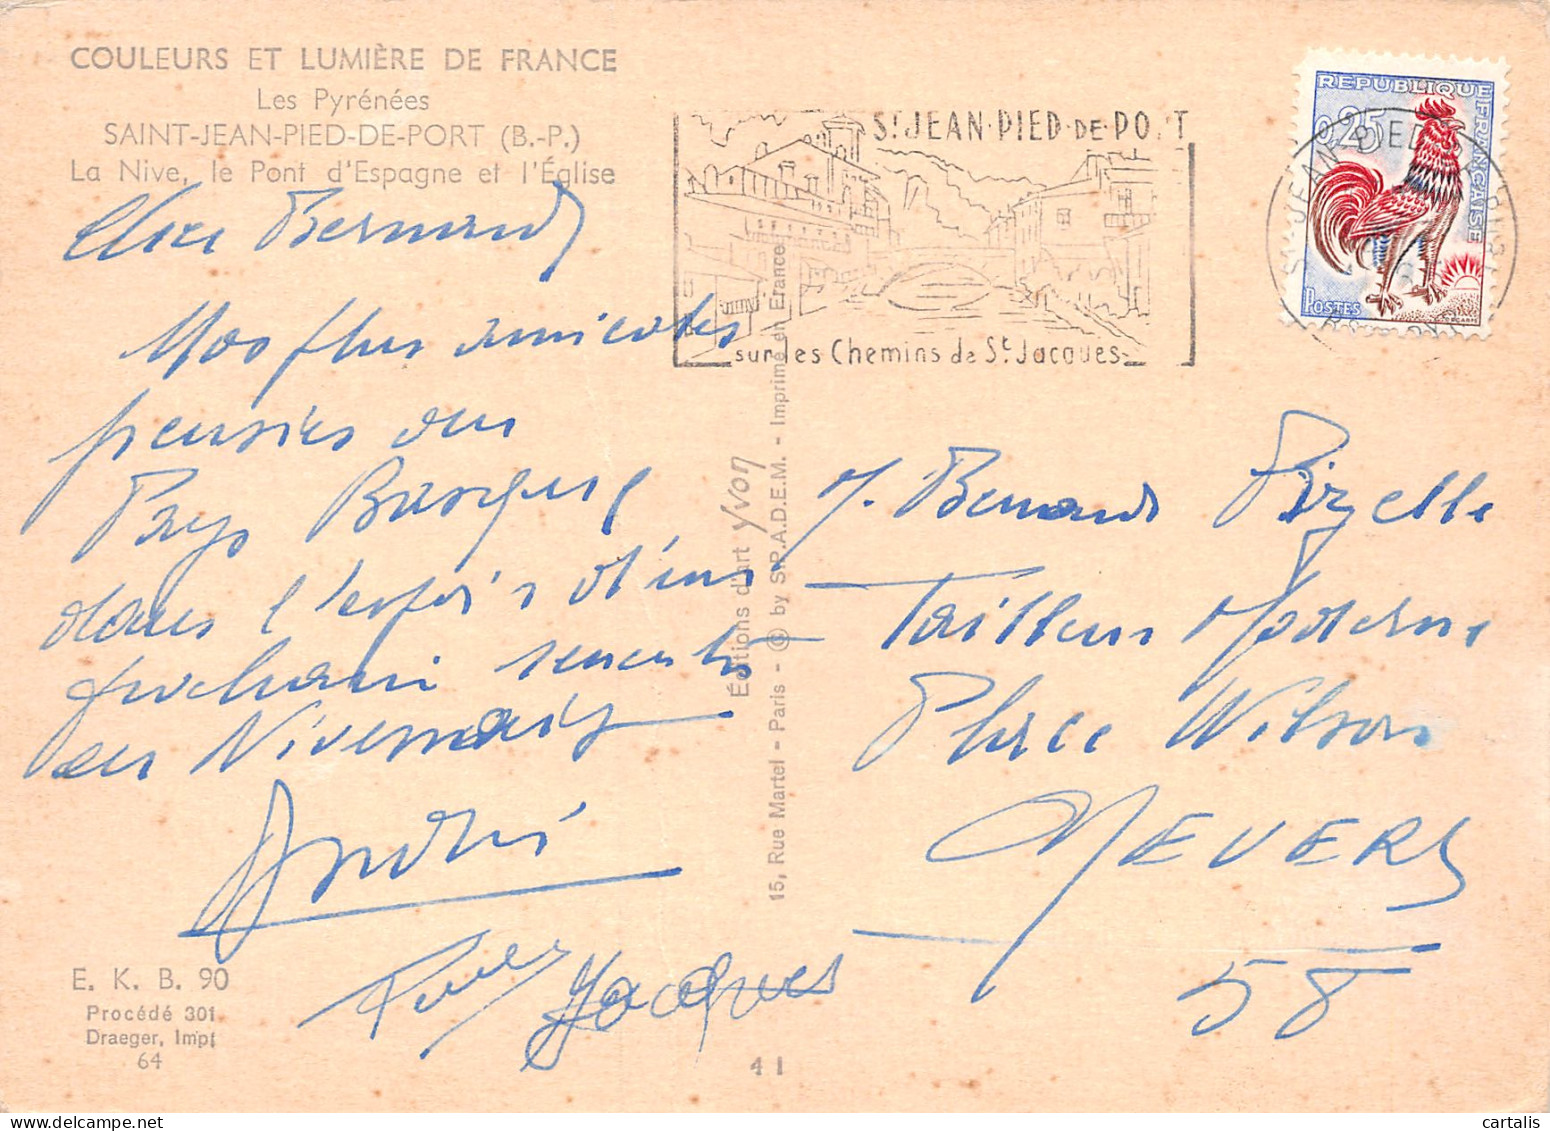 COULEURS ET LUMIÈRE DE FRANCE
Les Pyrénées
SAINT-JEAN-PIED-DE-PORT (B.-P.)
La Nive, le Pont d'Espagne et l'Église
Cher Bernard
Nos plus amicales
pensées du
Pays Basque
dans l'espoir d'une
prochaine rencontre
en Nivernais
André
Jacques
E. K. B. 90
Procédé 301
Draeger, Impt
64
41
Éditions d'art Yvon
15, Rue Martel - Paris - © by S.P.A.D.E.M. - Imprimé en France
ST JEAN-PIED-DE-PORT
sur les Chemins de St Jacques
REPUBLIQUE FRANÇAISE
0,25
POSTES
DECARIS
M. Bernard Pizelle
Tailleur Moderne
Place Wilson
NEVERS
58
cartalis